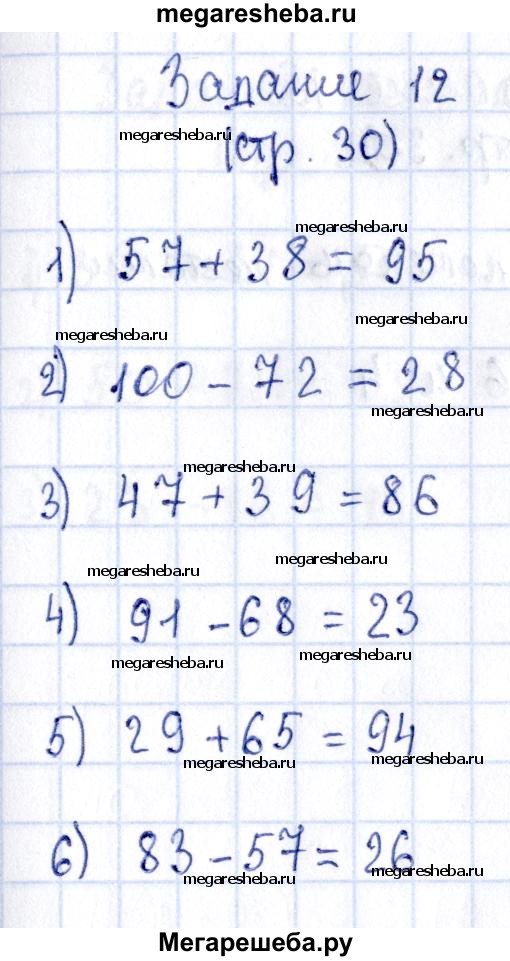 megaresheba.ru
Задание 12
megaresheba.ru
(стр. 30)
megaresheba.ru
1) 57 + 38 = 95
megaresheba.ru
megaresheba.ru
2) 100 - 72 = 28
megaresheba.ru
megaresheba.ru
3) 47 + 39 = 86
megaresheba.ru
megaresheba.ru
4) 91 - 68 = 23
megaresheba.ru
megaresheba.ru
5) 29 + 65 = 94
megaresheba.ru
megaresheba.ru
6) 83 - 57 = 26
megaresheba.ru
megaresheba.ru
Мегарешеба.ру